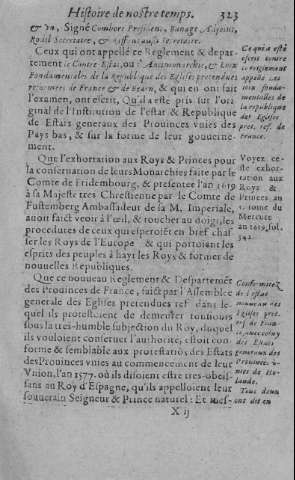 Histoire de nostre temps. 323
& da, Signé Combort President, Banage Adjoint,
Rodil Secretaire, & Riffaut aussi Secretaire.
Ceux qui ont appellé ce Reglement & depar-
tement le Contre Estat, ou l'Antimonarchie, & Loix
Fondamentales de la Republique des Eglises pretenduës
reformees de France & de Bearn, & qui en ont fait
l'examen, ont escrit, Qu'il a esté pris sur l'ori-
ginal de l'Institution de l'estat & Republique
de Estats generaux des Provinces vnies des
Pays bas, & sur la forme de leur gouuerne-
ment.
Que l'exhortation aux Roys & Princes pour
la conseruation de leurs Monarchies faite par le
Comte de Fridembourg, & presentee l'an 1619
à sa Majesté tres Chrestienne par le Comte de
Fustemberg Ambassadeur de sa M. Imperiale,
auoit faict veoir à l'œil, & toucher au doigt, les
procedures de ceux qui esperoiét en bref chas-
ser les Roys de l'Europe & qui portoient les
esprits des peuples à hayr les Roys & former de
nouuelles Republiques.
Que ce nouueau Reglement & Despartemét
des Prouinces de France, faict par l'Assemblee
generale des Eglises pretenduës ref dans le-
quel ils protestoient de demeurer tousiours
sous la tres-humble subjection du Roy, duquel
ils vouloient conseruer l'authorité, estoit con-
forme & semblable aux protestatiõs des Estats
des Prouinces vnies au commencement de leur
Vnion, l'an 1577. où ils disoient estre tres-obeis-
sans au Roy d'Espagne, qu'ils appelloient leur
souuerain Seigneur & Prince naturel: Et mes-
X ij
Ce qui a esté
escrit contre
ce reiglement
appellé les
loix fonda-
mentales de
la republique
des Eglises
pret. ref. de
France.
Voyez ce-
ste exhor-
tation aux
Roys &
Princes au
5. tome du
Mercure
an 1619. fol.
342.
Conformitez
de l'estat
nouueau des
Eglises pret.
ref. de Fran-
ce, auec celuy
des Estats
generaux des
Prouinces v-
nies de Ho-
lande.
Tous deux
ont dit en